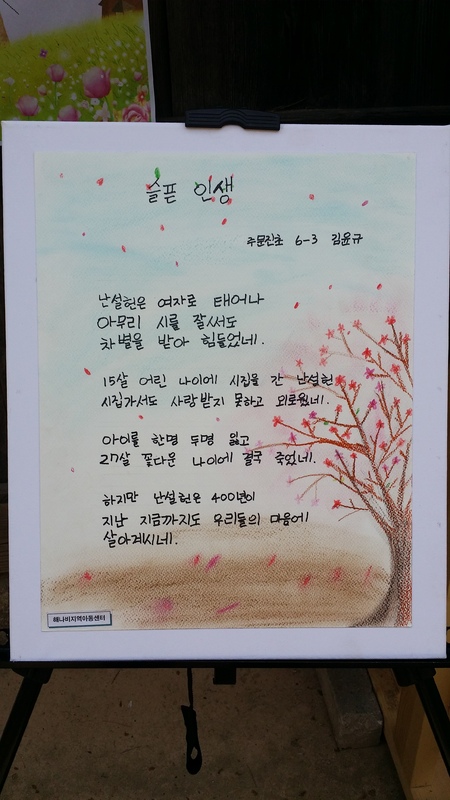 슬픈 인생
주문진초 6-3 김윤규
난설헌은 여자로 태어나
아무리 시를 잘써도
차별을 받아 힘들었네.
15살 어린 나이에 시집을 간 난설헌
시집가서도 사랑받지 못하고 외로웠네.
아이를 한명 두명 잃고
27살 꽃다운 나이에 결국 죽었네.
하지만 난설헌은 400년이
지난 지금까지도 우리들의 마음에
살아계시네.
해나비지역아동센터